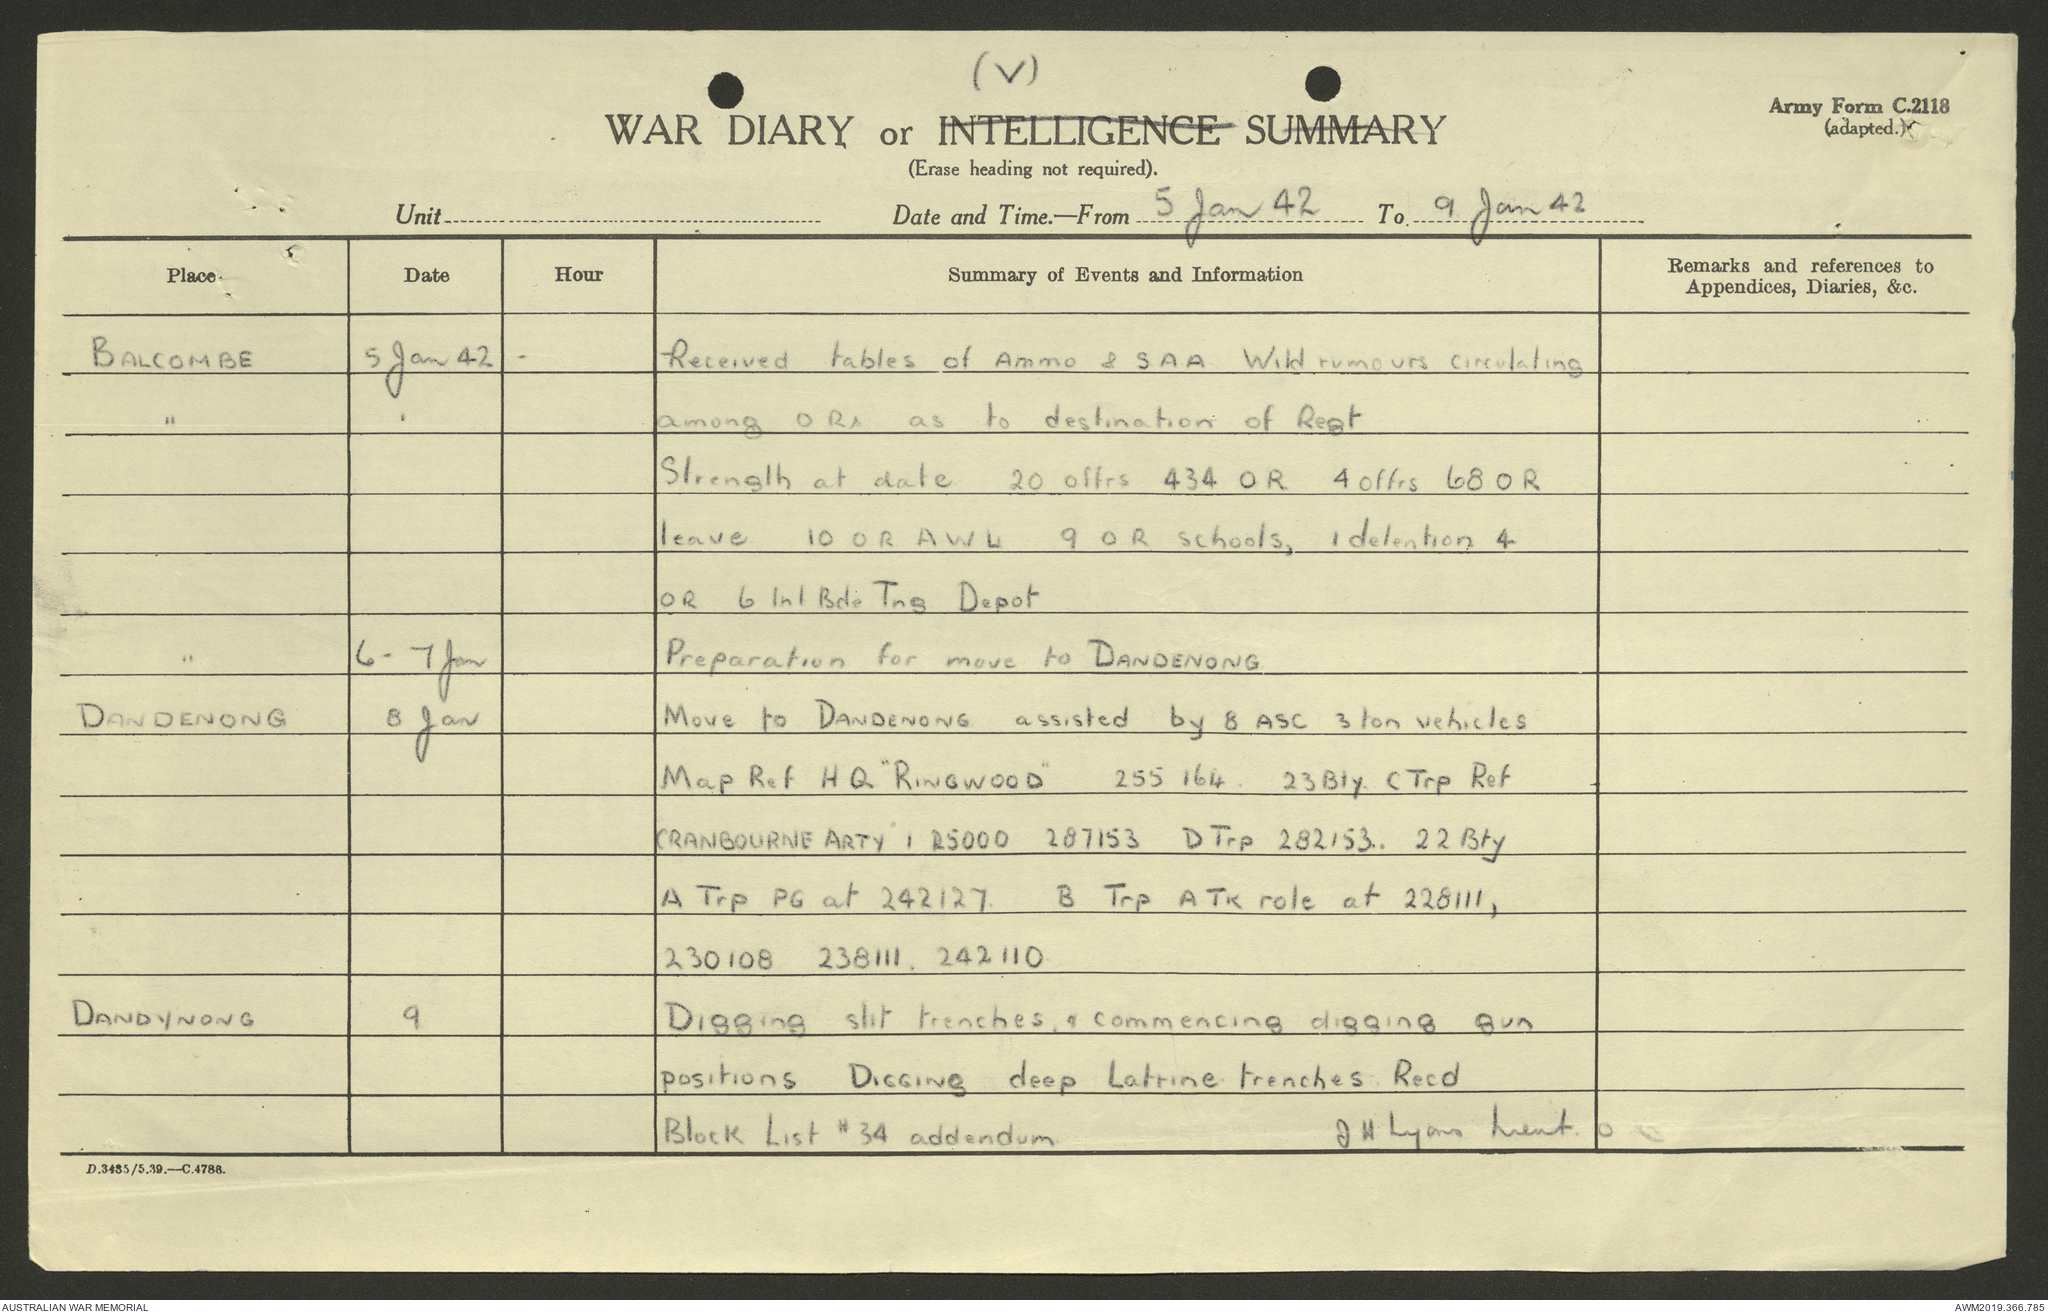 (V)
Army Form C.2118
(adapted.)
WAR DIARY or INTELLIGENCE SUMMARY
(Erase heading not required).
Unit Date and Time.—From 5 Jan 42 To 9 Jan 42
Place Date Hour Summary of Events and Information Remarks and references to
Appendices, Diaries, &c.
BALCOMBE 5 Jan 42 - Received tables of Ammo & SAA Wild rumours circulating
" " among ORs as to destination of Regt
Strength at date 20 offrs 434 OR 4 offrs 68 OR
leave 10 OR AWL 9 OR schools, 1 detention 4
OR 6 Inf Bde Tng Depot
" 6-7 Jan Preparation for move to DANDENONG
DANDENONG 8 Jan Move to DANDENONG assisted by 8 ASC 3 ton vehicles
Map Ref HQ "RINGWOOD" 255 164. 23 Bty. C Trp Ref
CRANBOURNE ARTY 1 25000 287153 D Trp 282153.. 22 Bty
A Trp PG at 242127. B Trp ATK role at 228111,
230108 238111. 242110
DANDYNONG 9 Digging slit trenches, & commencing digging gun
positions DIGGING deep Latrine trenches. Recd
Block List #34 addendum J H Lyons Lieut.
D.3435/5.39.—C.4788.
AUSTRALIAN WAR MEMORIAL
AWM2019.366.785